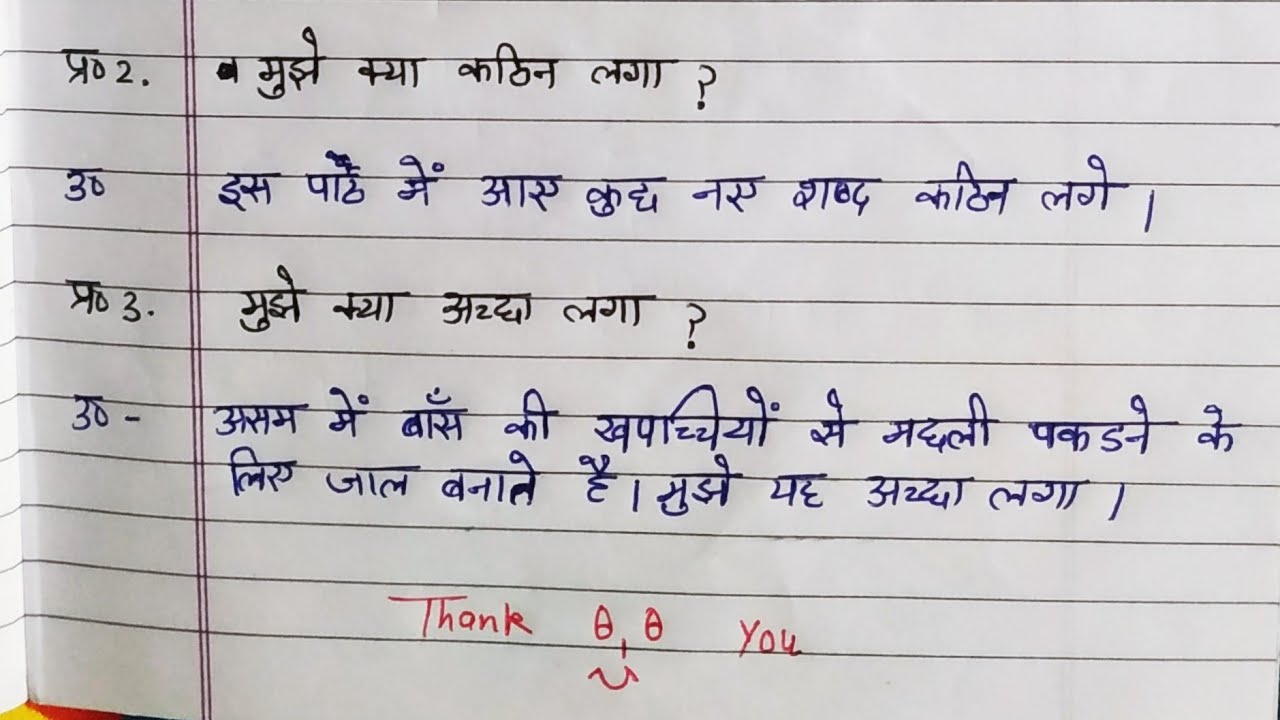 प्र०2. मुझे क्या कठिन लगा ?
उ० इस पाठ में आए कुछ नए शब्द कठिन लगे ।
प्र०3. मुझे क्या अच्छा लगा ?
उ० - असम में बाँस की खपच्चियों से मछली पकडने के
लिए जाल बनाते है । मुझे यह अच्छा लगा ।
Thank You